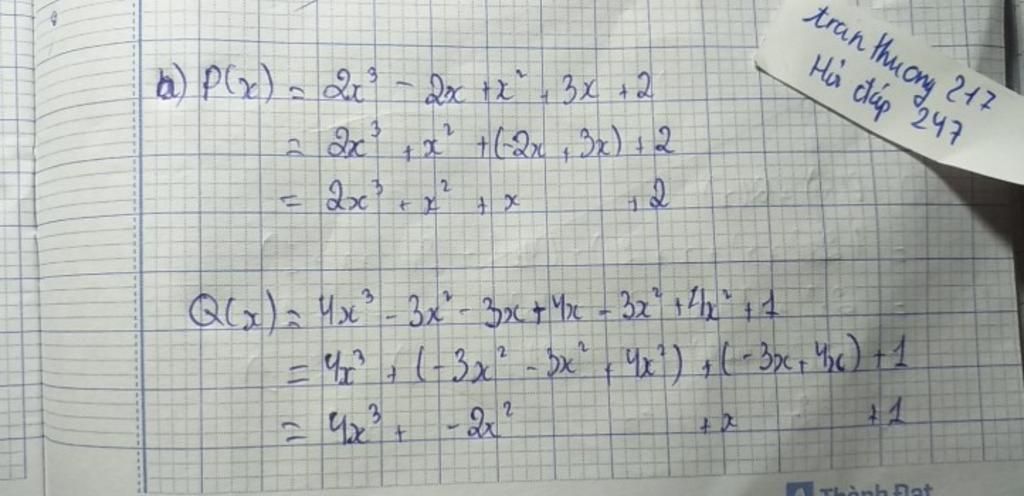 a) P(x) = 2x³ - 2x + x² + 3x + 2
= 2x³ + x² + (-2x + 3x) + 2
= 2x³ + x² + x + 2
Q(x) = 4x³ - 3x² - 3x + 4x - 3x² + 4x² + 1
= 4x³ + (-3x² - 3x² + 4x²) + (-3x + 4x) + 1
= 4x³ + -2x² + x + 1
tran thuong 217
Hỏi đáp 247
Thành Đạt